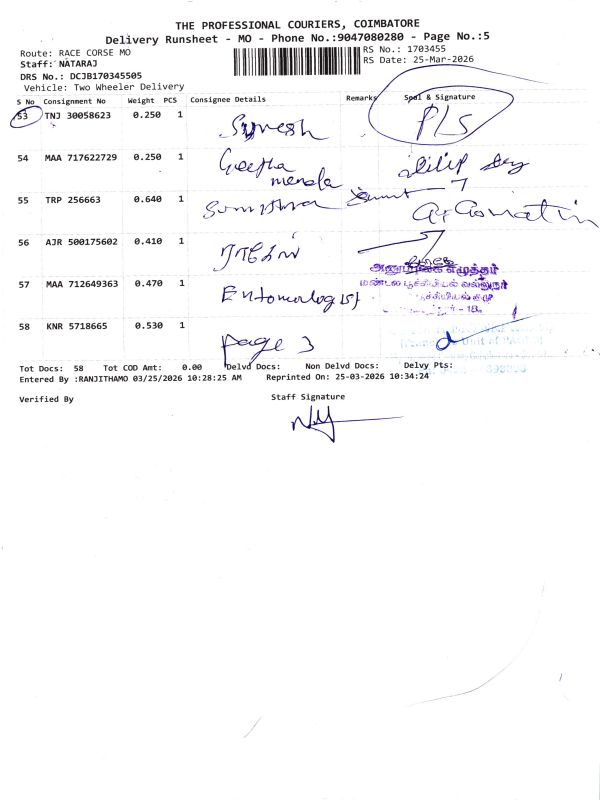 THE PROFESSIONAL COURIERS, COIMBATORE
Delivery Runsheet - MO - Phone No.:9047080280 - Page No.:5
Route: RACE CORSE MO
RS No.: 1703455
Staff: NATARAJ
RS Date: 25-Mar-2026
DRS No.: DCJB170345505
Vehicle: Two Wheeler Delivery
S No Consignment No Weight PCS Consignee Details Remarks Seal & Signature
53 TNJ 30058623 0.250 1 Suresh PLS
54 MAA 717622729 0.250 1 Geetha
55 TRP 256663 0.640 1
56 AJR 500175602 0.410 1
அனுபவிக்கை எழுத்தர்
57 MAA 712649363 0.470 1 Entomologist
58 KNR 5718665 0.530 1 page 3
Tot Docs: 58 Tot COD Amt: 0.00 Delvd Docs: Non Delvd Docs: Delvy Pts:
Entered By :RANJITHAMO 03/25/2026 10:28:25 AM Reprinted On: 25-03-2026 10:34:24
Verified By
Staff Signature